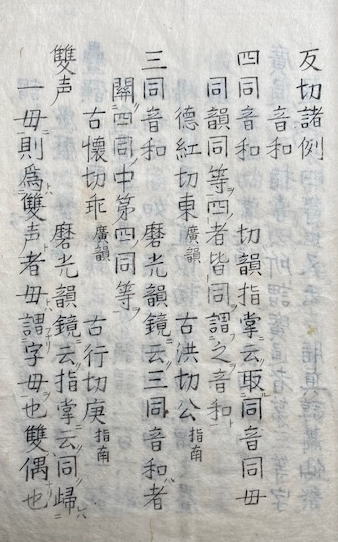 反切諸例
音和
四同音和　切韻指掌云取同音同毋
同韻同等四者皆同謂之音和
德紅切東廣韻　古洪切公指南
三同音和　磨光韻鏡云三同音和者
闕四同中第四同等
古懷切乖廣韻　古行切庚指南
雙声　磨光韻鏡云指掌云同歸
一毋則爲雙声者毋謂字毋也雙偶也